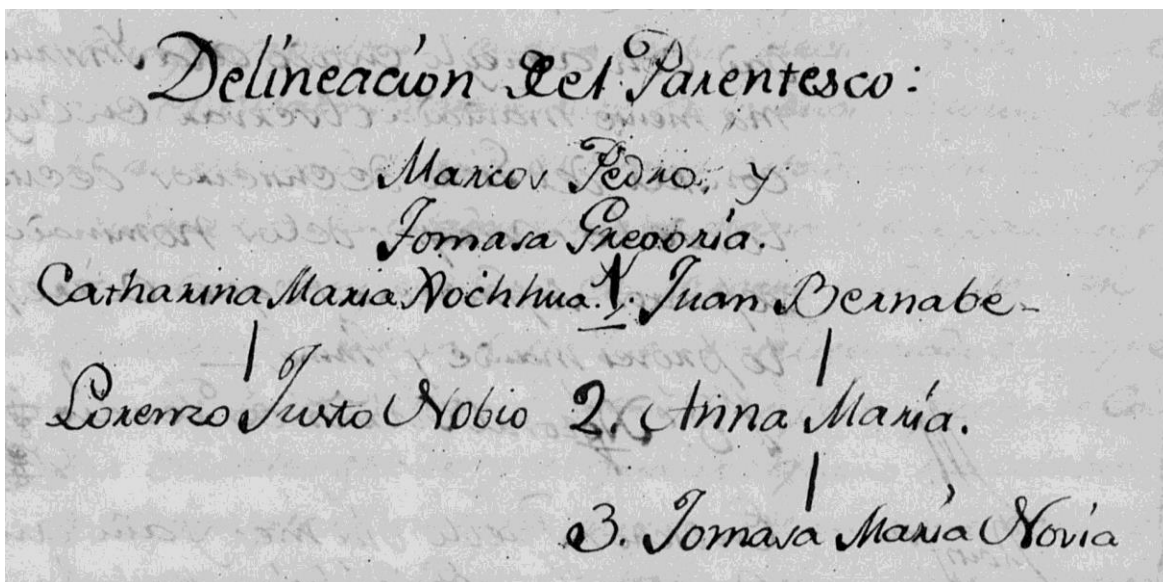 Delineacion Del Parentesco:
Marcos Pedro, y
Tomasa Gregoria.
Catharina Maria Nochhua. 1. Juan Bernabe
Lorenzo Justo Nobio 2. Anna María.
3. Tomasa María Novia